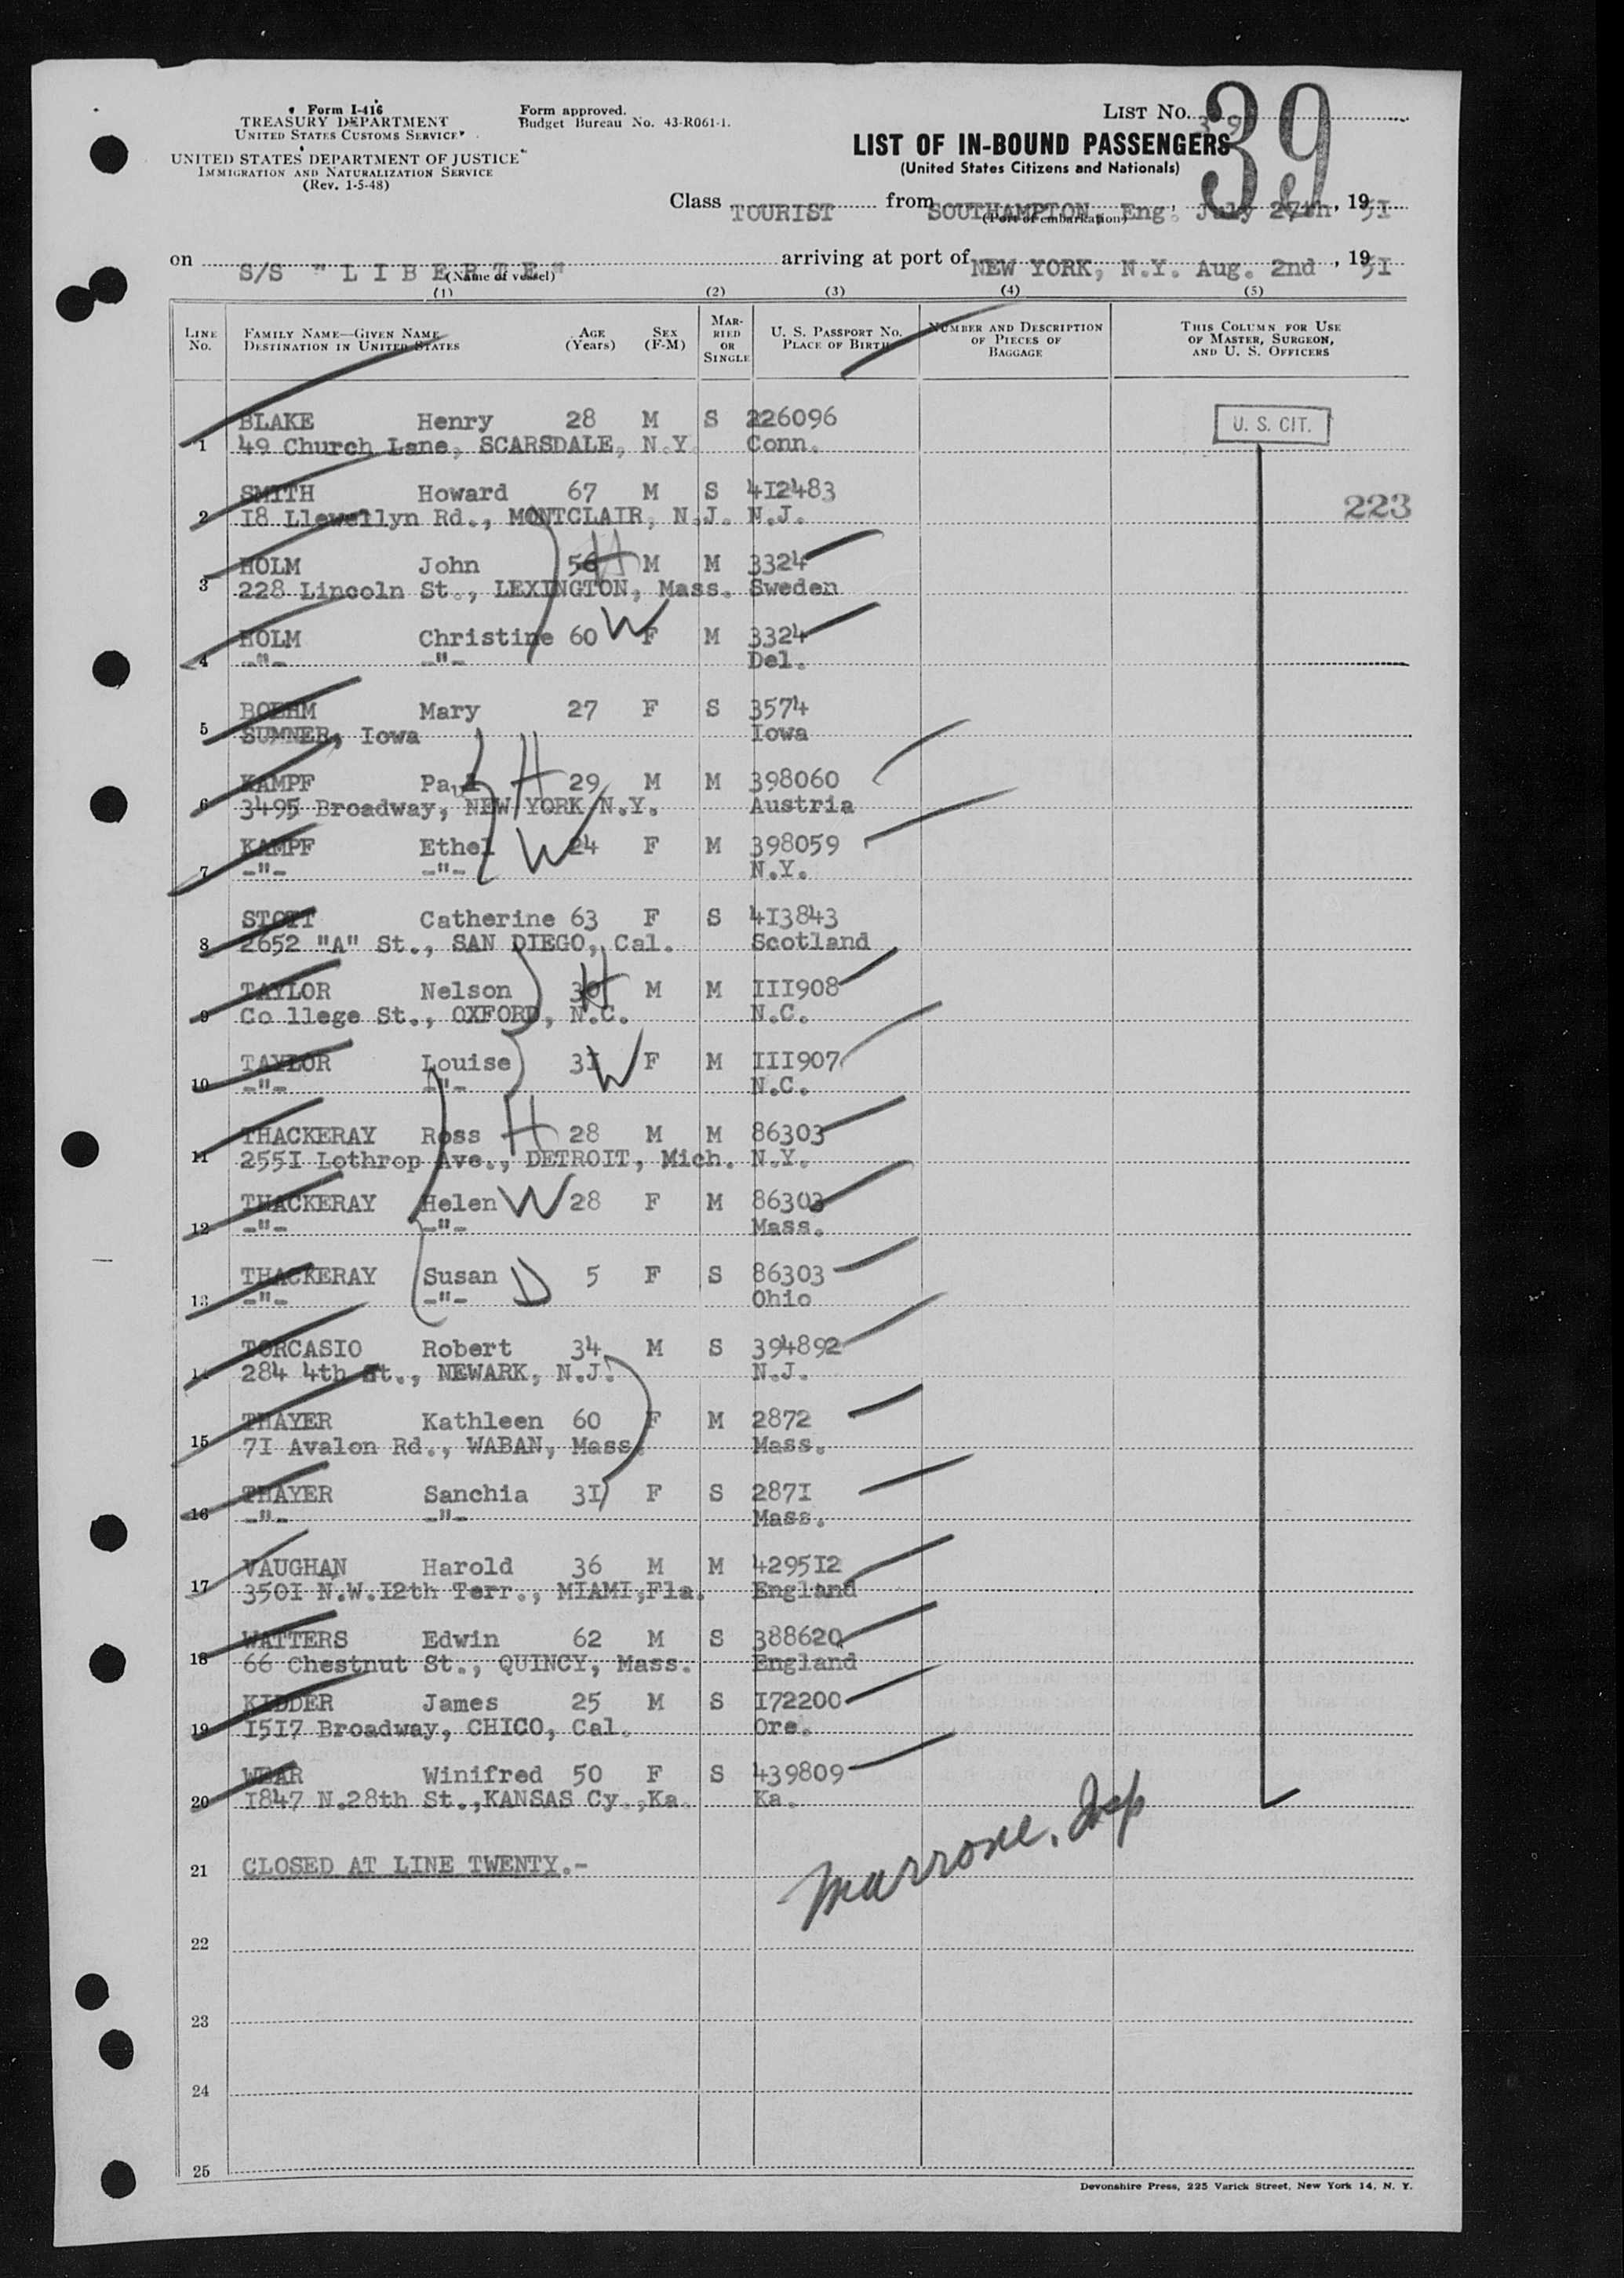 Form I-416
TREASURY DEPARTMENT
UNITED STATES CUSTOMS SERVICE
UNITED STATES DEPARTMENT OF JUSTICE
IMMIGRATION AND NATURALIZATION SERVICE
(Rev. 1-5-48)
Form approved.
Budget Bureau No. 43-R061-1.
LIST NO. 39
39
LIST OF IN-BOUND PASSENGERS
(United States Citizens and Nationals)
Class TOURIST from SOUTHAMPTON, Eng., July 27th, 1951
(Port of embarkation)
on S/S "LIBERTE" arriving at port of NEW YORK, N.Y. Aug. 2nd, 1951
(Name of vessel)
(1) (2) (3) (4) (5)
LINE NO. FAMILY NAME—GIVEN NAME DESTINATION IN UNITED STATES AGE (Years) SEX (F-M) MARRIED OR SINGLE U. S. PASSPORT NO. PLACE OF BIRTH NUMBER AND DESCRIPTION OF PIECES OF BAGGAGE THIS COLUMN FOR USE OF MASTER, SURGEON, AND U. S. OFFICERS
BLAKE Henry 28 M S 226096 U. S. CIT.
1 49 Church Lane, SCARSDALE, N.Y. Conn.
SMITH Howard 67 M S 412483 223
2 18 Llewellyn Rd., MONTCLAIR, N.J. N.J.
HOLM John 56 H M M 3324
3 228 Lincoln St., LEXINGTON, Mass. Sweden
HOLM Christine 60 W F M 3324
4 -"- -"- Del.
BOEHM Mary 27 F S 3574
5 SUMNER, Iowa Iowa
KAMPF Paul H 29 M M 398060
6 3495 Broadway, NEW YORK N.Y. Austria
KAMPF Ethel W 24 F M 398059
7 -"- -"- N.Y.
STOTT Catherine 63 F S 413843
8 2652 "A" St., SAN DIEGO, Cal. Scotland
TAYLOR Nelson 30 H M M III908
9 Co llege St., OXFORD, N.C. N.C.
TAYLOR Louise 31 W F M III907
10 -"- -"- N.C.
THACKERAY Ross H 28 M M 86303
11 2551 Lothrop Ave., DETROIT, Mich. N.Y.
THACKERAY Helen W 28 F M 86303
12 -"- -"- Mass.
THACKERAY Susan D 5 F S 86303
13 -"- -"- Ohio
TORCASIO Robert 34 M S 394892
14 284 4th St., NEWARK, N.J. N.J.
THAYER Kathleen 60 F M 2872
15 71 Avalon Rd., WABAN, Mass. Mass.
THAYER Sanchia 31 F S 2871
16 -"- -"- Mass.
VAUGHAN Harold 36 M M 429512
17 3501 N.W.12th Terr., MIAMI,Fla. England
WATTERS Edwin 62 M S 388620
18 66 Chestnut St., QUINCY, Mass. England
KIDDER James 25 M S 172200
19 1517 Broadway, CHICO, Cal. Ore.
WEAR Winifred 50 F S 439809
20 1847 N.28th St.,KANSAS Cy.,Ka. Ka.
Marrone, Insp
21 CLOSED AT LINE TWENTY.-
22
23
24
25
Devonshire Press, 225 Varick Street, New York 14, N. Y.